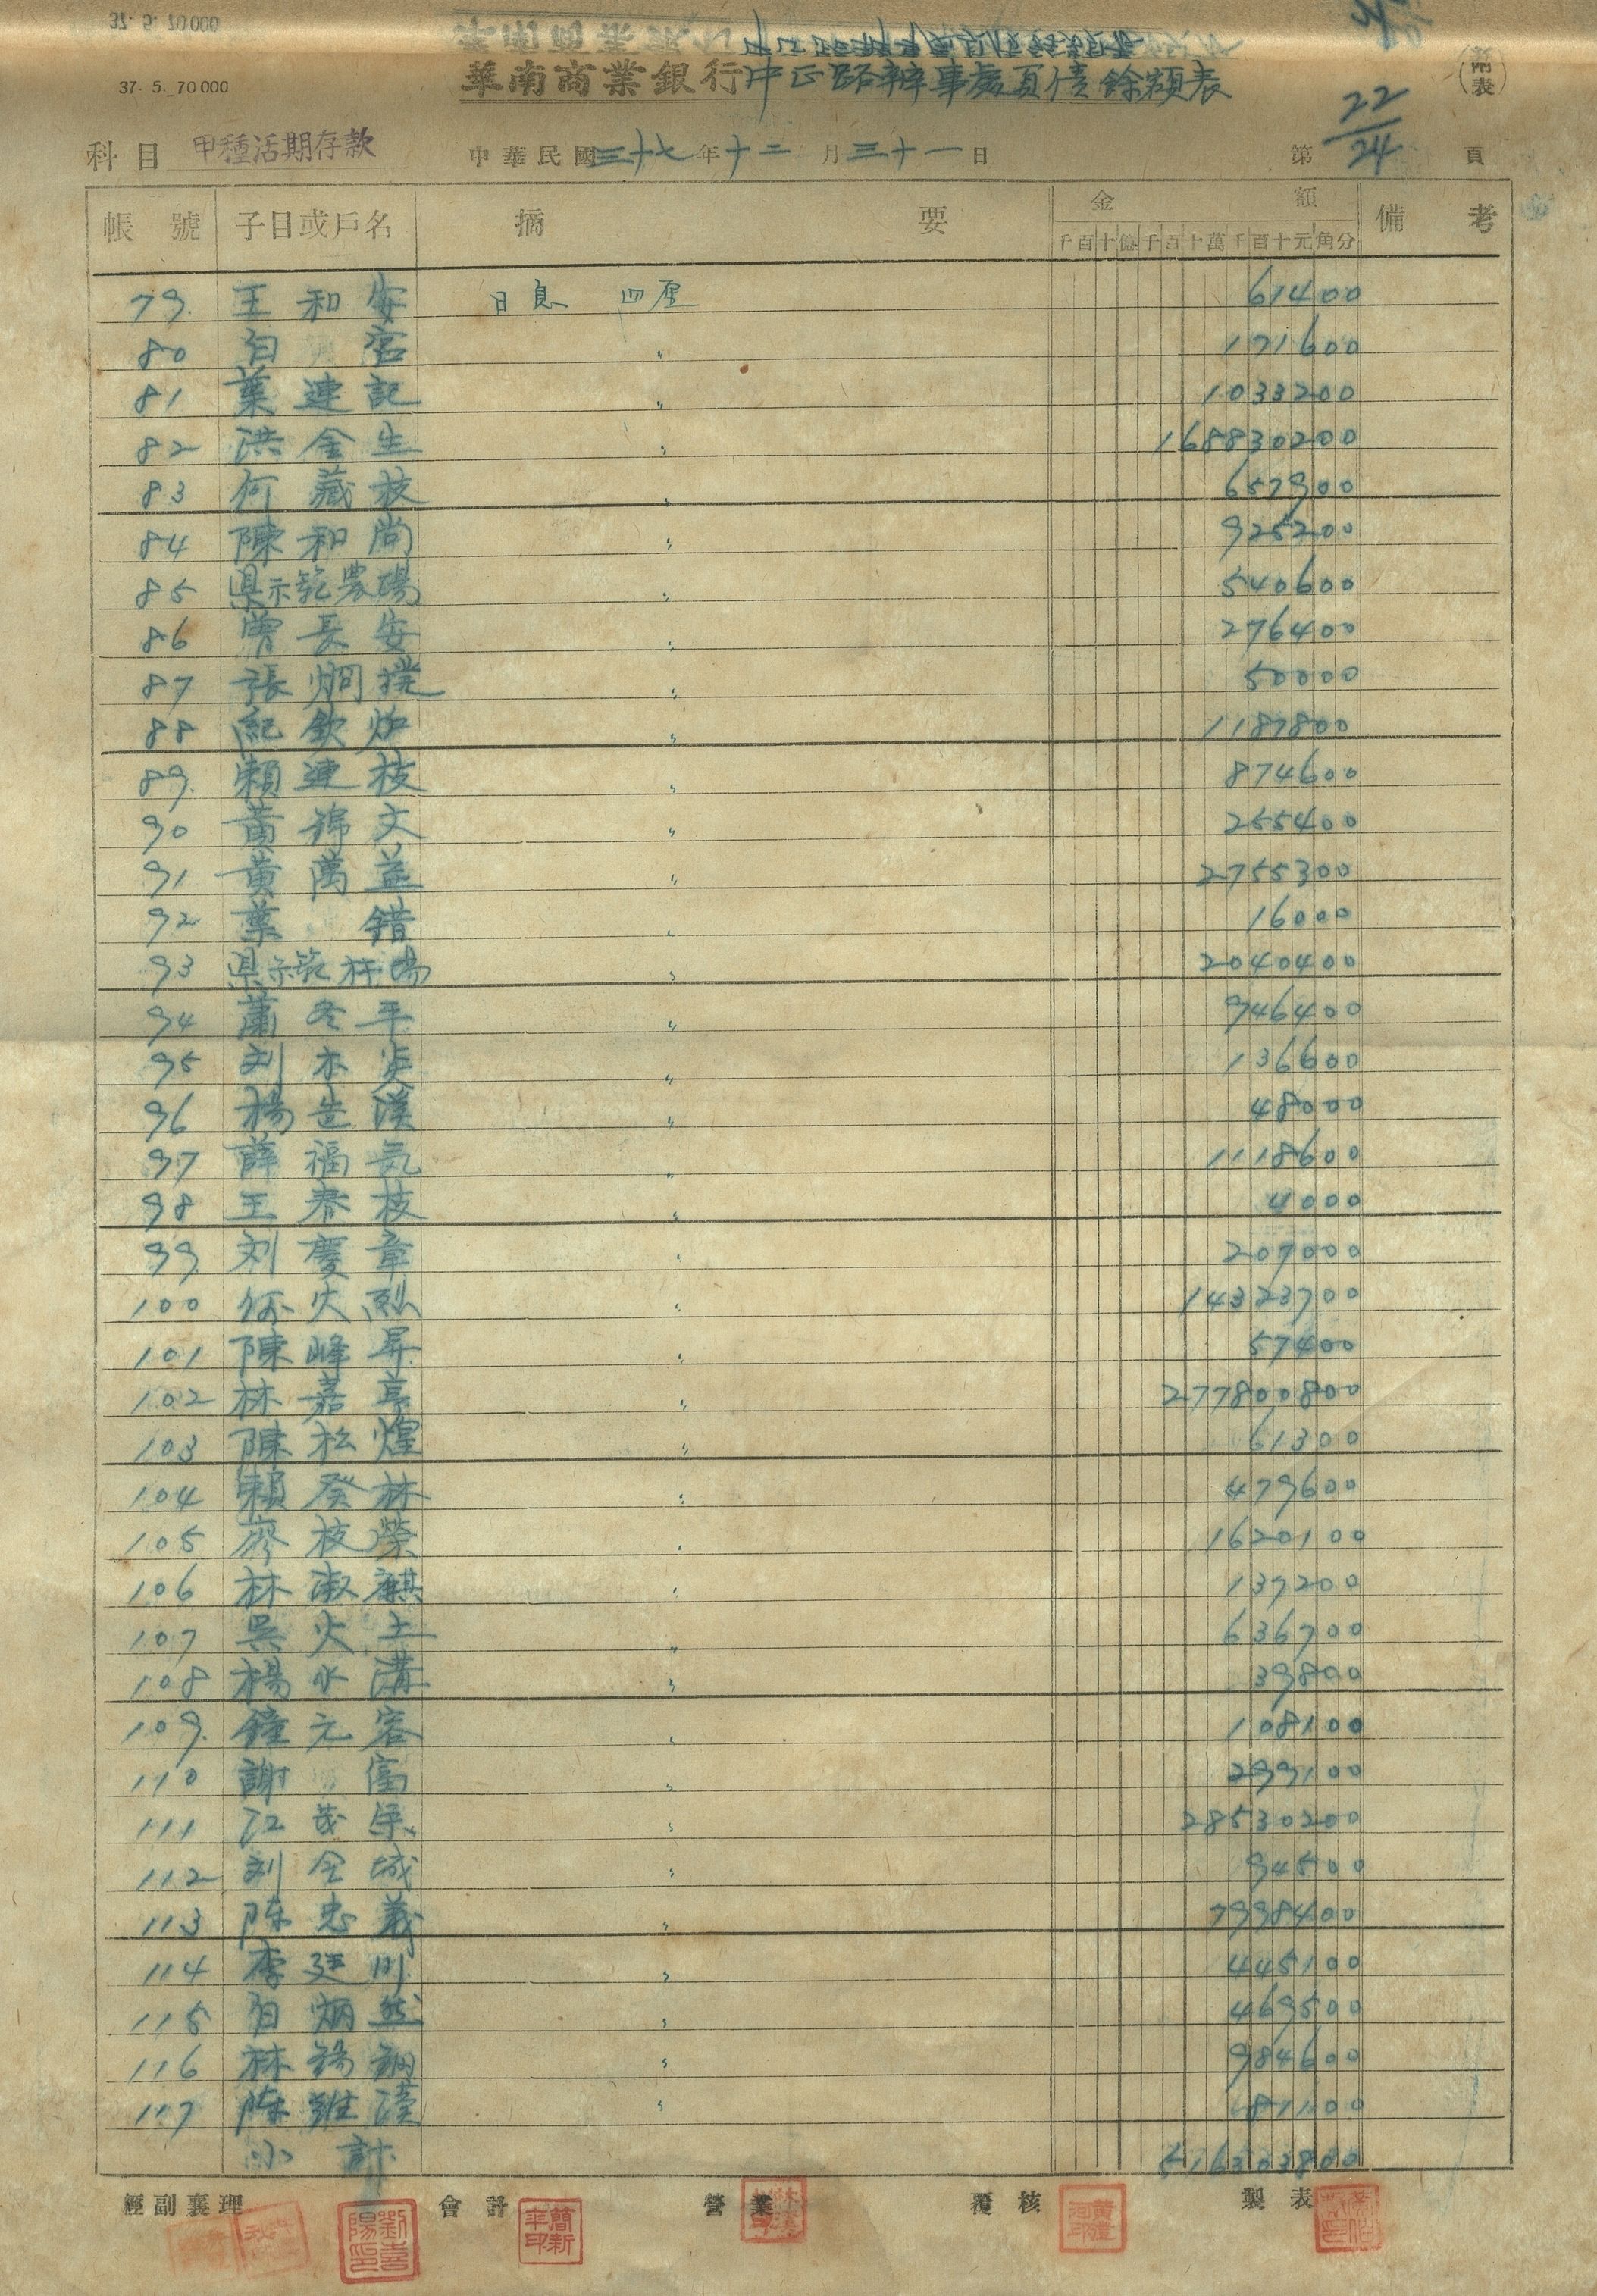 37. 5. 70000
華南商業銀行中正路辦事處負債餘額表
(附表)
科目 甲種活期存款 中華民國三十七年十二月三十一日 第22/24頁
帳號 子目或戶名 摘要 金額 備考
千百十億千百十萬千百十元角分
79. 王和安 日息 四厘 61400
80 白宮 〃 171600
81 葉連記 〃 1033200
82 洪金生 〃 168830200
83 何藏枝 〃 657900
84 陳和尚 〃 925200
85 県示範農場 〃 540600
86 曾長安 〃 276400
87 張炯 〃 50000
88 紀欽炉 〃 1187800
89. 賴連枝 〃 874600
90 黃錦文 〃 255400
91 黃萬益 〃 2755300
92 葉錯 〃 16000
93 県示範林場 〃 2040400
94 蕭冬平 〃 946400
95 刘木炎 〃 136600
96 楊世漢 〃 48000
97 薛福気 〃 1118600
98 王春枝 〃 4000
99. 刘慶章 〃 207000
100 何火烈 〃 14323700
101 陳峰昇 〃 57400
102 林嘉亨 〃 277800800
103 陳松煌 〃 61300
104 賴癸林 〃 479600
105 廖枝榮 〃 1620100
106 林淑麒 〃 137200
107 吳火土 〃 636700
108 楊水溝 〃 39800
109. 鐘元容 〃 108100
110 謝富 〃 299100
111 江茂 〃 28530200
112 刘金城 〃 94500
113 陈忠義 〃 7998400
114 李廷川 〃 445100
115 白炳然 〃 469500
116 林錫鋼 〃 984600
117 陈維漢 〃 81100
小計 516303800
經副襄理 會計 營業 覆核 製表
劉喜陽印 簡新華印